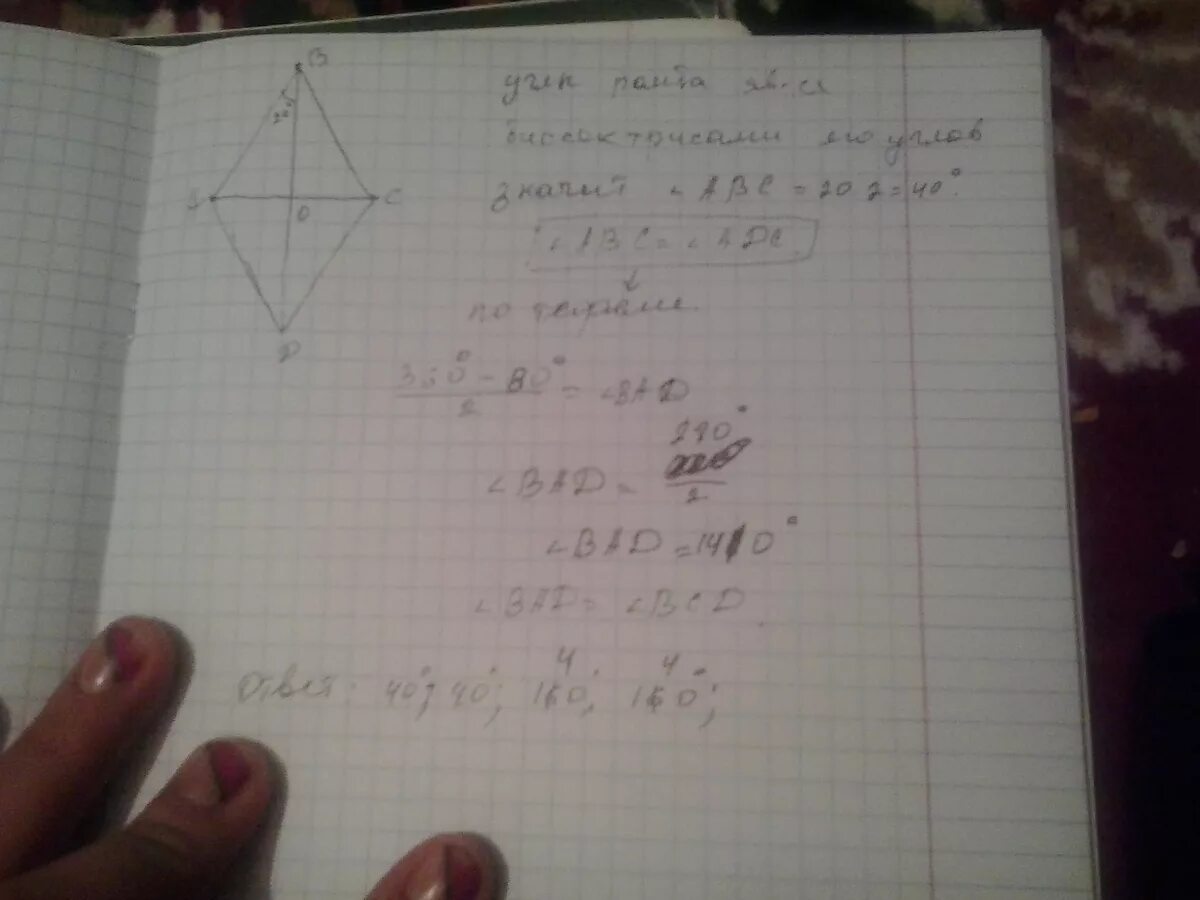 B
20°
A
C
O
D
углы ромба яв-ся
биссектрисами его углов
значит ∠ABC = 20·2 = 40°
∠ABC = ∠ADC
↓
по
360° - 80° / 2 = ∠BAD
∠BAD = 280° / 2
∠BAD = 140°
∠BAD = ∠BCD
Ответ: 40°; 40°; 140°; 140°;